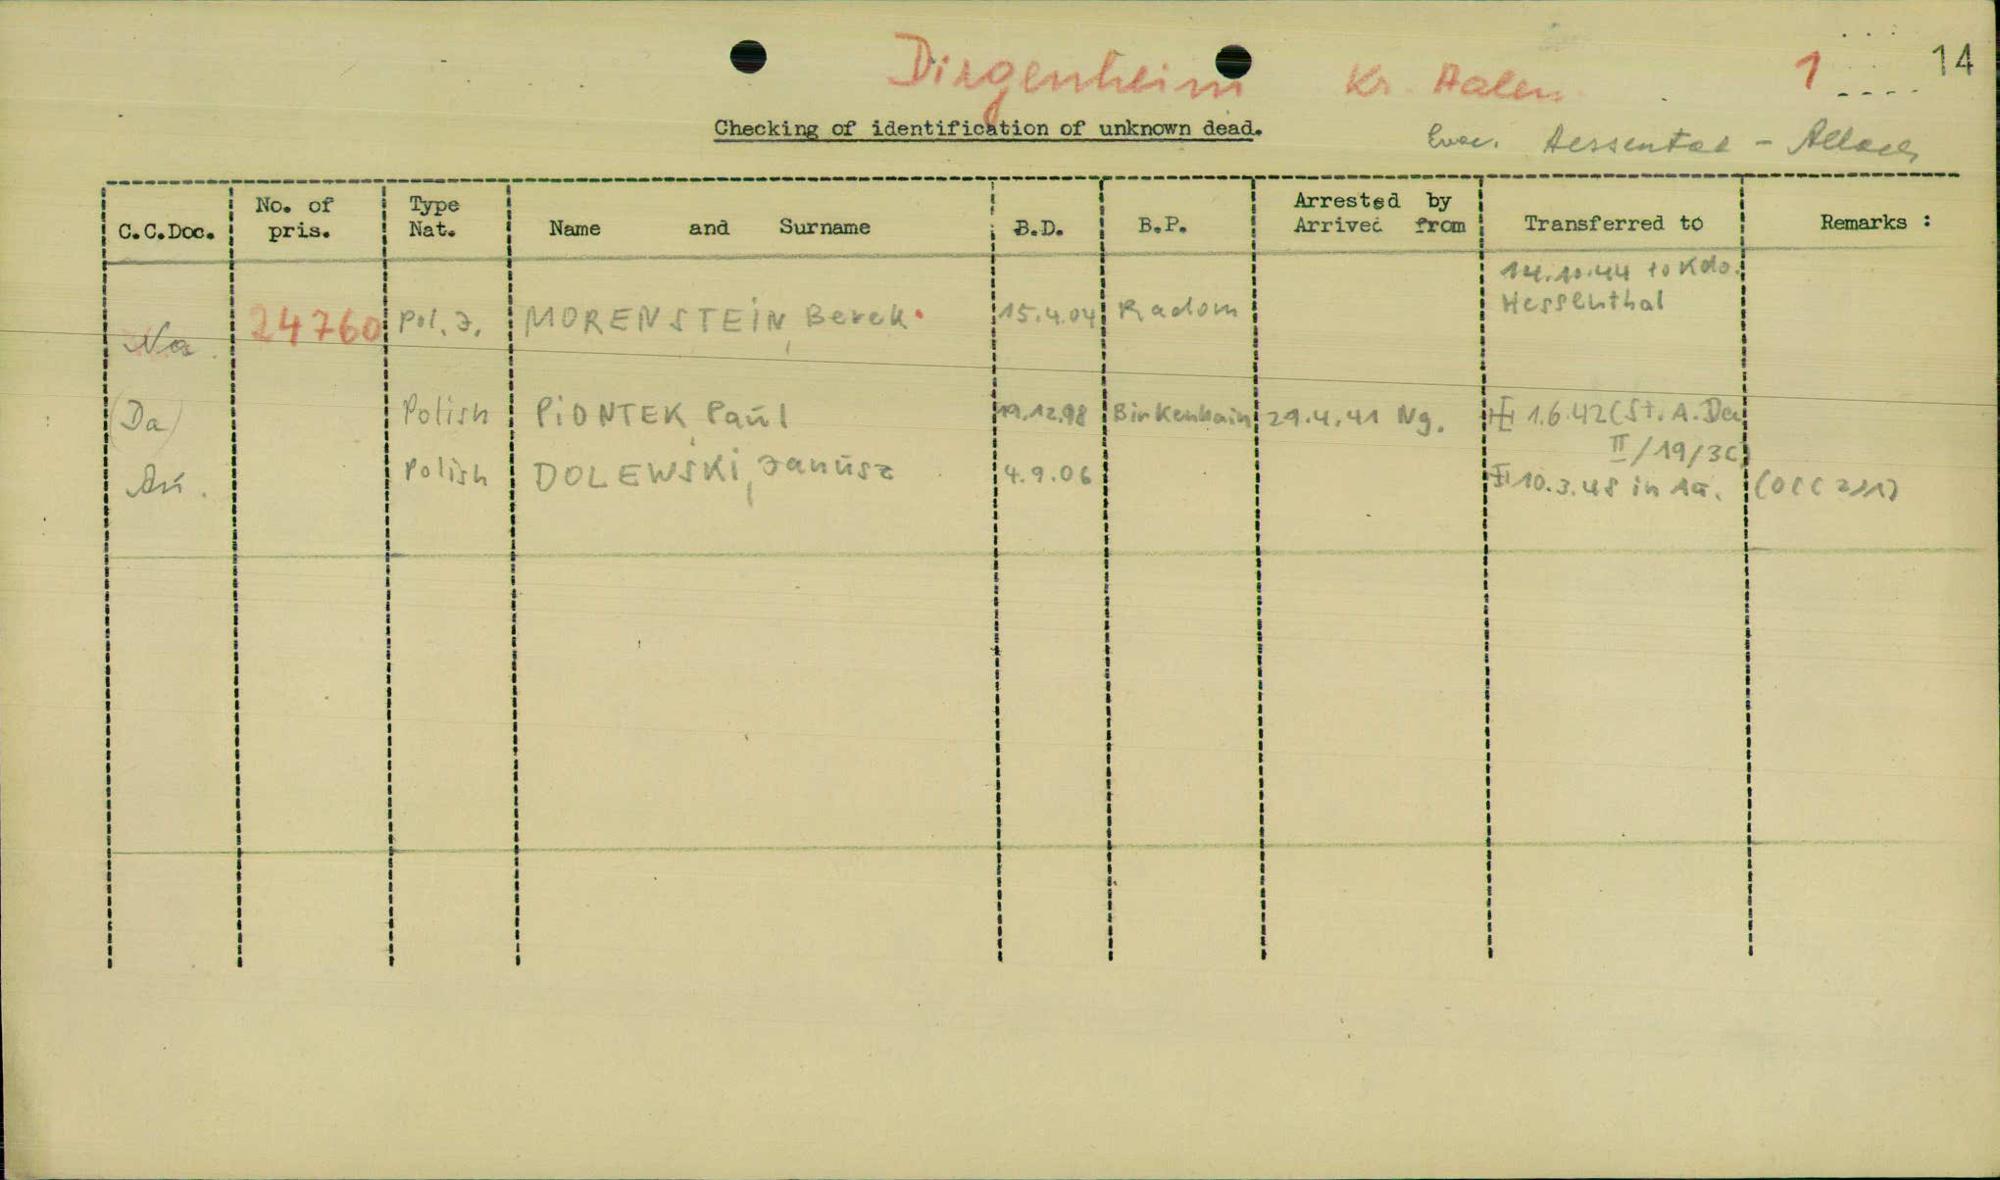 Dirgenheim Kr. Aalen 1 14
Checking of identification of unknown dead.
Evac. Hessental - Allach
C.C.Doc. No. of pris. Type Nat. Name and Surname B.D. B.P. Arrested by Arrived from Transferred to Remarks :
14.10.44 to Kdo.
Hessenthal
Na. 24760 Pol. J. MORENSTEIN, Berek 15.4.04 Radom
(Da) Polish PIONTEK, Paul 19.12.98 Birkenhain 29.4.41 Ng. 1.6.42 (St. A. Da
II/19/36)
Polish DOLEWSKI, Janusz 4.9.06 10.3.45 in (OCC